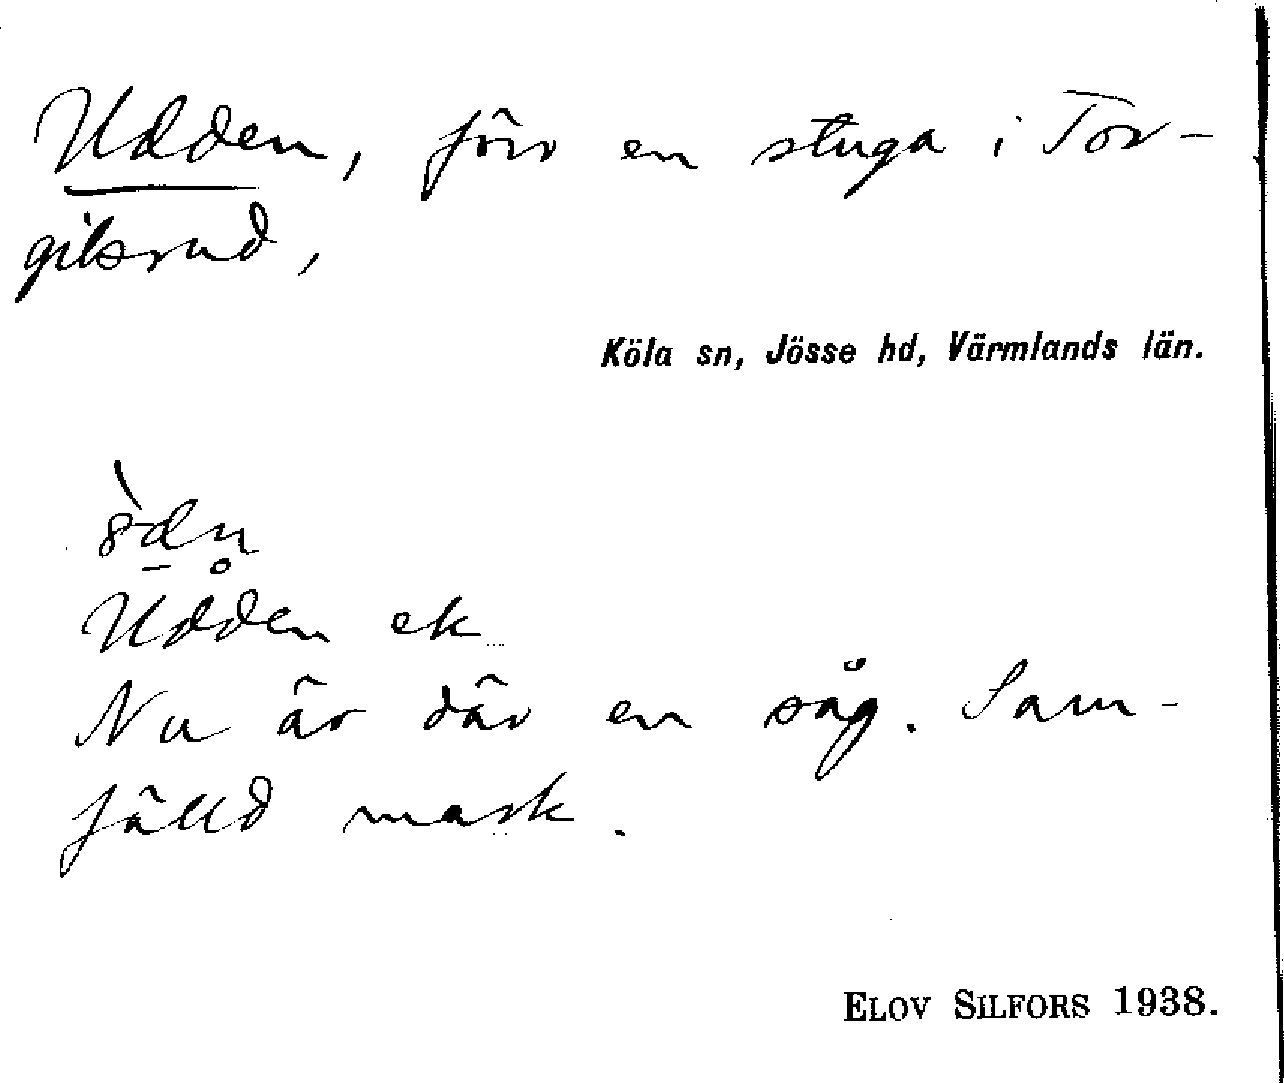 Udden, förr en stuga i Tor-
gilsrud,
Köla sn, Jösse hd, Värmlands län.
Udden ek
Nu är där en såg. Sam-
fälld mark.
ELOV SILFORS 1938.